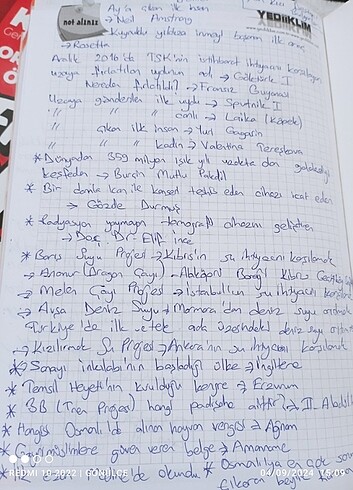 not alınız
YEDİİKLİM
Ay'a çıkan ilk insan
→ Neil Armstrong
Kuyruklu yıldıza inmeyi başaran ilk araç
→ Rosetta
Aralık 2016'da TSK'nin istihbarat ihtiyacını
uzaya fırlatılan uydunun adı → Göktürk I
Nereden fırlatıldı? → Fransız Guyanası
Uzaya gönderilen ilk uydu → Sputnik I
" " " canlı → Laika (Köpek)
" çıkan ilk insan → Yuri Gagarin
" " " kadın → Valentina Tereşkova
* Dünyadan 359 milyon ışık yılı uzakta olan galaksiyi
keşfeden → Burçin Mutlu Pakdil
* Bir damla kan ile kanseri teşhis eden cihazı icat eden
→ Gözde Durmuş
* Radyasyon yaymayan tomografi cihazını geliştiren
→ Doç. Dr. Elif İnce
* Barış Suyu Projesi → Kıbrıs'ın su ihtiyacını karşılamak
→ Anamur (Dragon Çayı) - Alaköprü Barajı Kıbrıs Geçitköy
→ Melen Çayı Projesi → İstanbul'un su ihtiyacını
→ Avşa Deniz Suyu → Marmara'dan deniz suyu arıtmak
Türkiye'de ilk ada üzerindeki deniz suyu
→ Kızılırmak Su Projesi → Ankara'nın su ihtiyacını karşılamak
* Sanayi inkılabı'nın başladığı ülke → İngiltere
* Temsil Heyeti'nin kurulduğu kongre → Erzurum
* 3B (Tren Projesi) hangi padişaha aittir? → II. Abdül
* Hangisi Osmanlı'da alınan hayvan vergisi → Ağnam
* Gayrimüslimlere güven veren belge → Amanname
* İlk ezan nerede okundu * Osmanlıya en çok
çıkaran beylik
REDMI 10 2022 | GÖNÜLCE
04/09/2024 15:09